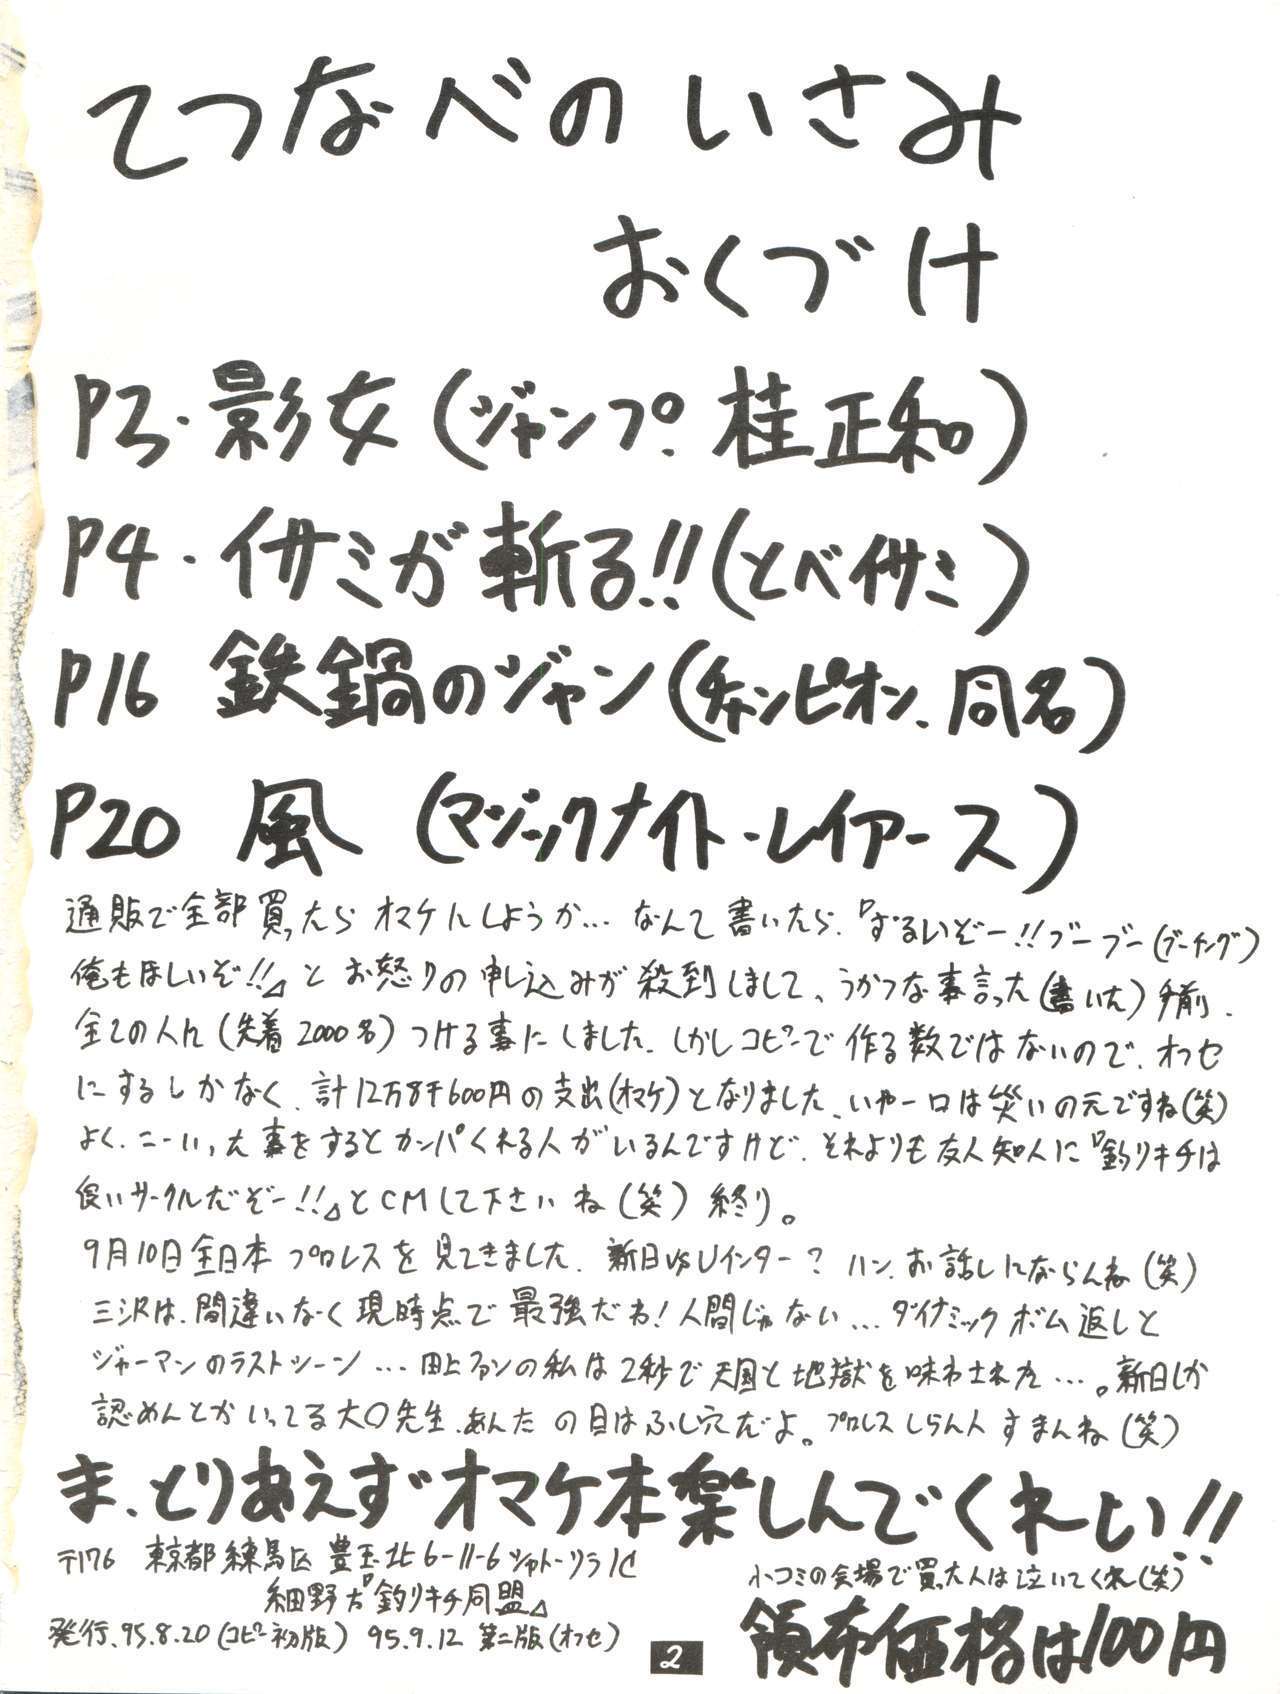 てつなべのいさみ
おくづけ
P3・影女(ジャンプ.桂正和)
P4・イサミが斬る!!(とべイサミ)
P16 鉄鍋のジャン(チャンピオン、同名)
P20 風(マジックナイト・レイアース)
通販で全部買ったらオマケにしようか…なんて書いたら、『ずるいぞー!!ブーブー(ブーイング)
俺もほしいぞ!!』とお怒りの申し込みが殺到しまして、うかつな事言った(書いた)手前、
全ての人に(先着2000名)つける事にしました、しかしコピーで作る数ではないので、オフセ
にするしかなく、計12万8千600円の支出(オマケ)となりました、いやー口は災いの元ですね(笑)
よく、こーいった事をするとカンパくれる人がいるんですけど、それよりも友人知人に『釣りキチは
良いサークルだぞー!!』とCMして下さいね(笑)終り。
9月10日全日本プロレスを見てきました、新日vsUインター?ハン、お話しにならんね(笑)
三沢は、間違いなく現時点で最強だね!人間じゃない…ダイナミックボム返しと
ジャーマンのラストシーン…田上ファンの私は2秒で天国と地獄を味わされた…。新日しか
認めんとかいってる大〇先生、あんたの目はふし穴だよ。プロレスしらん人すまんね(笑)
ま、とりあえずオマケ本楽しんでくれーい!!
〒176 東京都練馬区豊玉北6-11-6シャトーソラ1C
細野方『釣りキチ同盟』
小コミの会場で買った人は泣いてくれ(笑)
発行、95.8.20(コピー初版) 95.9.12 第二版(オフセ)
領布価格は100円
2